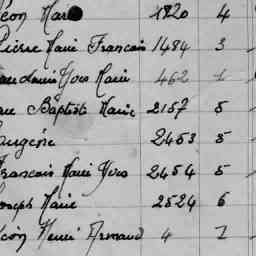 Léon Marie 1820 4
Pierre Marie Francois 1484 3
Louis Yves Marie 462 1
Baptiste Marie 2157 5
Eugène 2453 5
Francois Marie Yves 2454 5
Joseph Marie 2524 6
Léon Henri Armand 4 1